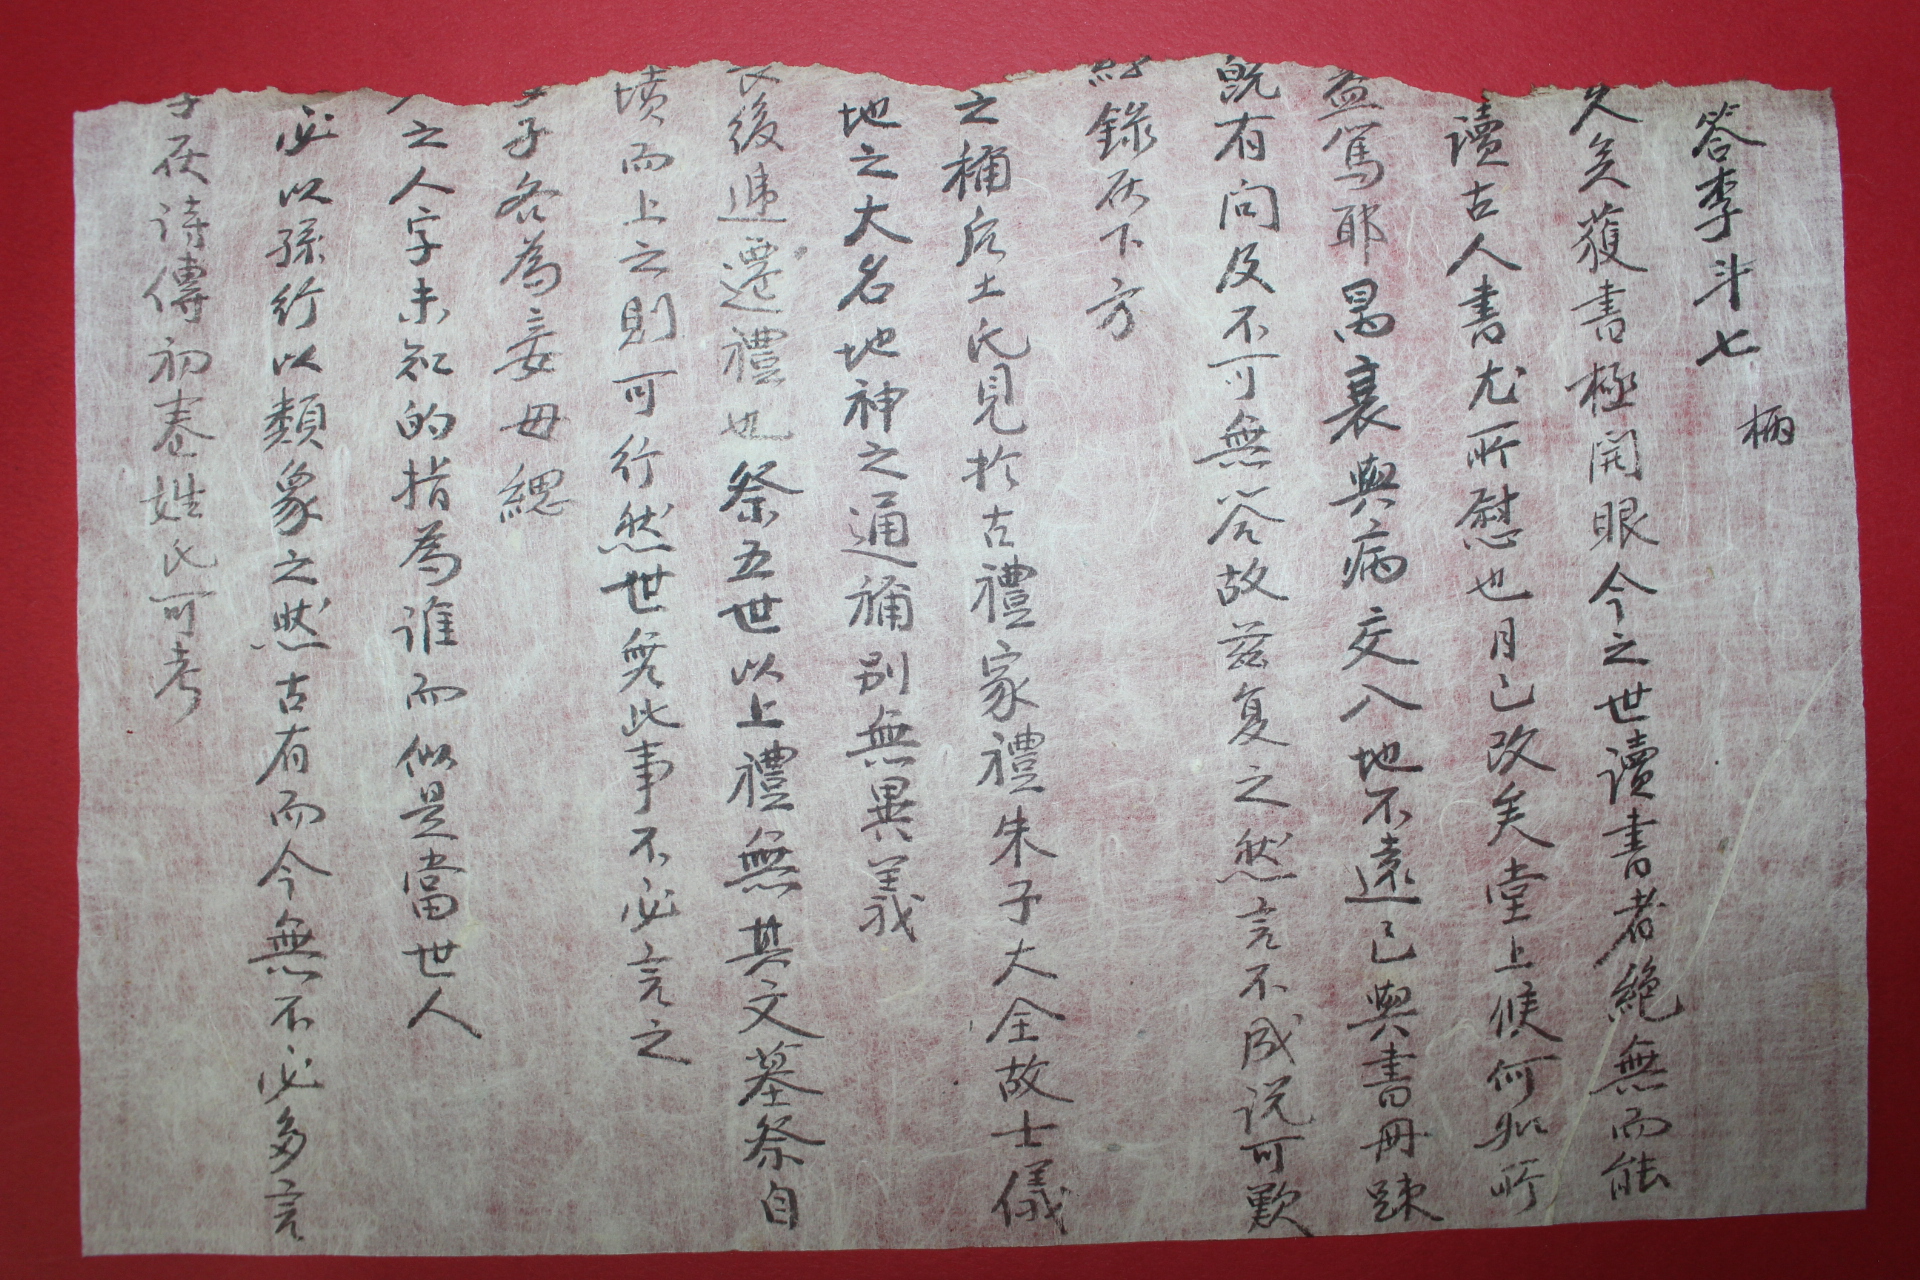 答李斗七
柄
久矣獲書極開眼今之世讀書者絶無而能
讀古人書尤所慰也月已改矣堂上候何如所
益篤耶昺衰與病交入地不遠已與書冊踈
旣有問及不可無答故玆复之然言不成说可歎
錄在下方
之稱后土氏見於古禮家禮朱子大全故士儀
地之大名地神之通稱別無異義
後遞遷禮也祭五世以上禮無其文墓祭自
墳而上之則可行然世無此事不必言之
子各為妾母緦
之人字未知的指為誰而似是當世人
必以孫行以類象之然古有而今無不必多言
子灰诗傳初卷姓氏可考